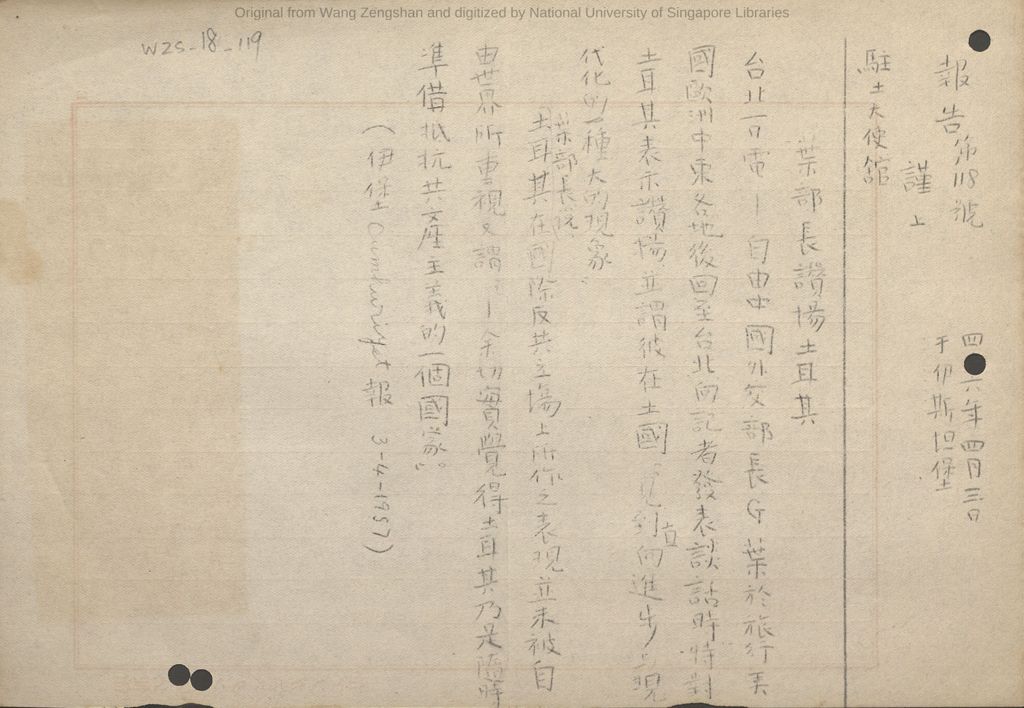 Original from Wang Zengshan and digitized by National University of Singapore Libraries
WZS-18-119
報告第118號
四六年四月三日
于伊斯坦堡
謹上
駐土大使舘
葉部長讚揚土耳其
台北一日電—自由中國外交部長G葉於旅行美
國歐洲中東各地後回至台北向記者發表談話時特對
土耳其表示讚揚並謂彼在土國“見到向直進步”現
代化的一種大的現象”
葉部長說
土耳其在國際反共立場上所作之表現並未被自
由世界所重視又謂:—余切實覺得土耳其乃是隨時
準備抵抗共產主義的一個國家。”
(伊堡Cumhuriyet報 3-4-1957)